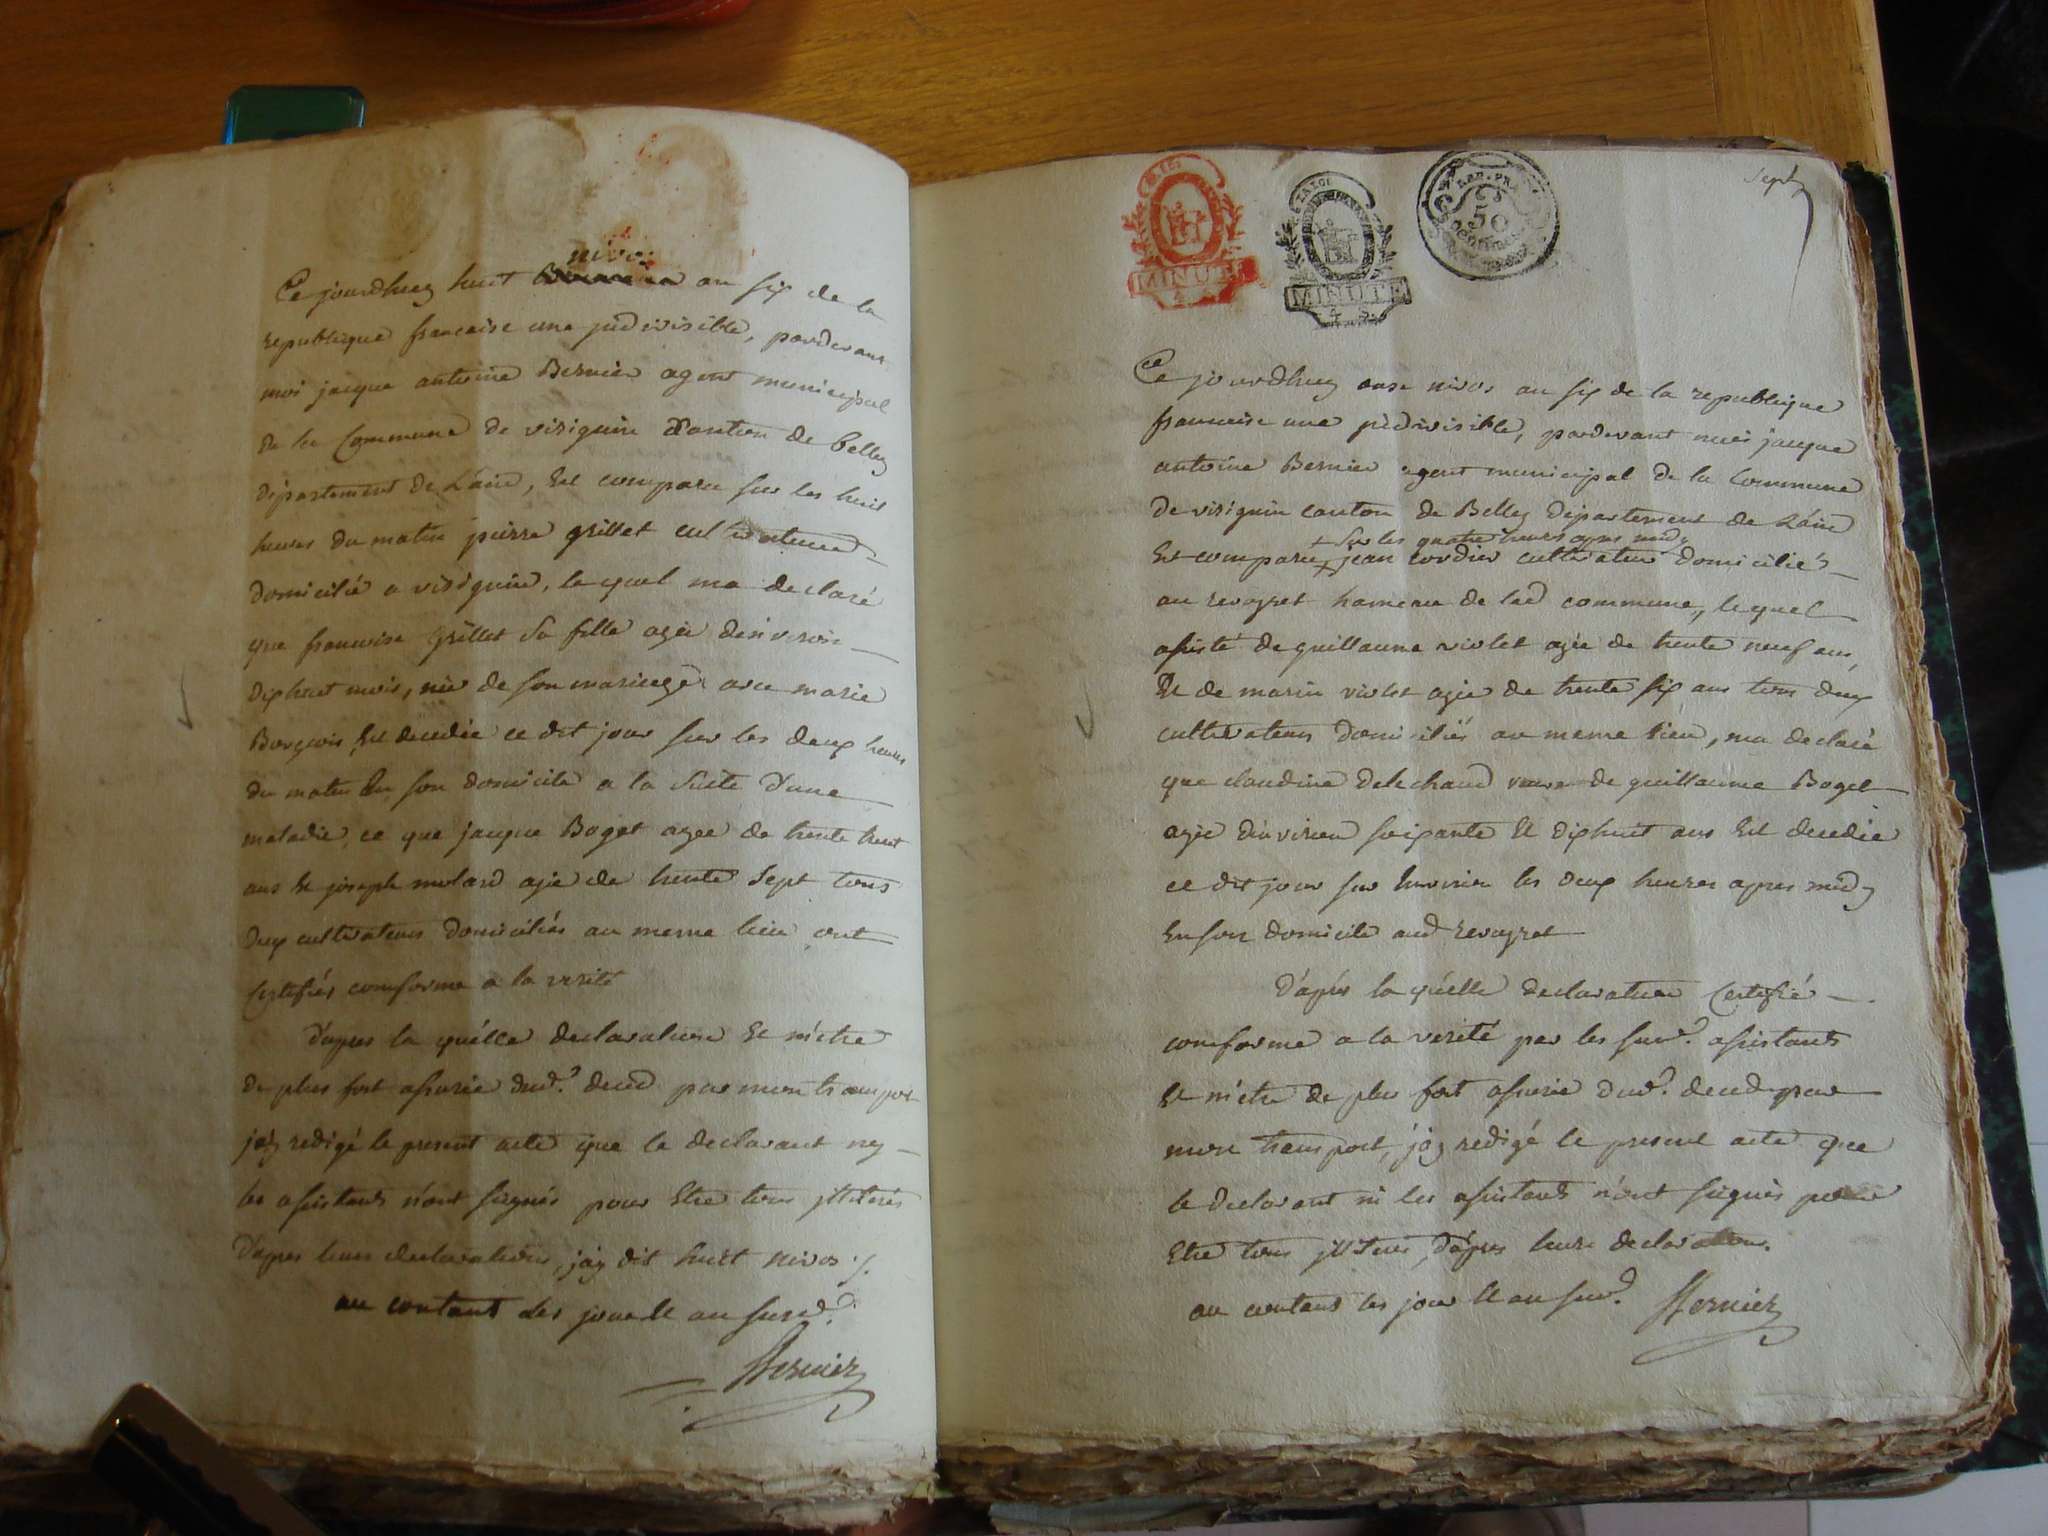 nivos
Ce jourdhuy huit an six de la
republique francaise une jndivisible, pardevant
moi jacque antoine Bernier agent municipal
de la Commune de virignin Canton de belley
département de L'ain, Est comparu sur les huit
heures du matin pierre grillet cultivateur
domicilié a virignin, le quel ma declaré
que francoise grillet Sa fille agée denviron
dixhuit mois, née de son mariage avec marie
Bourgeois Est decedée ce dit jour sur les deux heures
du matin En son domicile a la Suite d'une
maladie, ce que jacque Boget agee de trente huit
ans Et joseph molard agée de trente Sept tous
deux cultivateurs domiciliés au meme lieu ont
Certifiés comforme a la verité
D'apres la quélle declaration Et m'etre
de plus fort assurée dud.? deced par mon transport
j'ay redigé le present acte que le declarant ny
les assistants n'ont signés pour Etre tous jlliterés
D'apres leurs declaration, jay dit huit nivos ./.
au contant les jour Et an surd.?
JBernier
Sept
MINUTE
MINUTE
50
Ce jourdhuy onze nivos an six de la republique
francaise une jndivisible, pardevant moi jacque
antoine Bernier agent municipal de la Commune
de virignin canton de Belley département de L'ain
+ Sur les quatre heures apres midy
Est comparu + jean cordier cultivateur domicilié
au revoyret hameau de lad commune, le quel
assisté de guillaume violet agée de trente neuf ans,
Et de marin violet agée de trente six ans tous deux
cultivateurs domiciliés au meme lieu, ma declaré
que claudine delechaud veuve de guillaume Boget
agée d'environ soixante Et dixhuit ans Est decedée
ce dit jour sur Environ les deux heures apres midy
En son domicile aud revoyret
D'apres la quélle declaration Certifié
comforme a la verité par les surd.? assistants
Et m'etre de plus fort assurée dud.? deced par
mon transport, j'ay redigé le present acte que
le declarant ni les assistants n'ont signés pour
Etre tous jlliterés, D'apres leurs declaration.
au contant les jour Et an surd.? JBernier